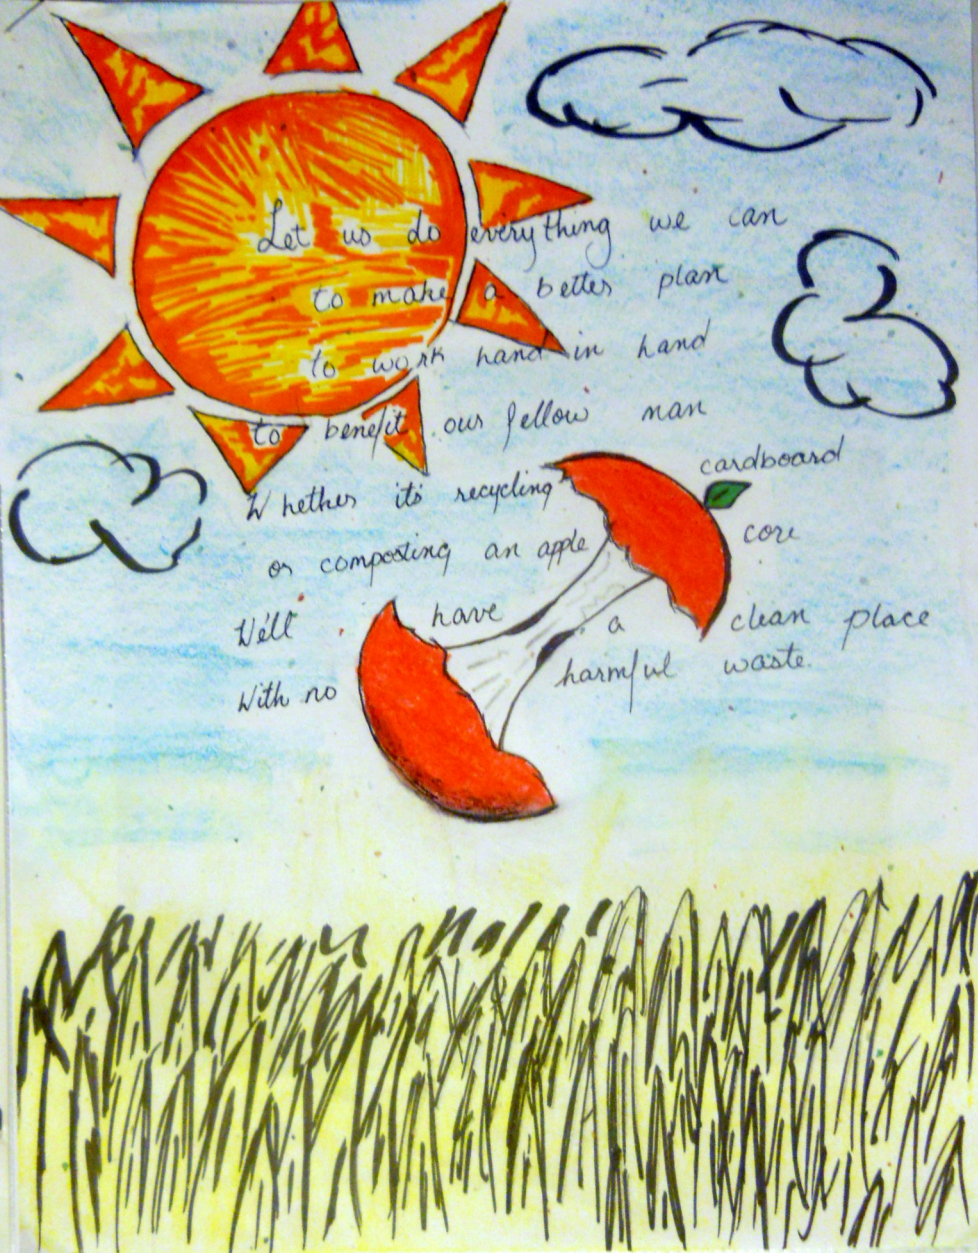 Let us do everything we can
to make a better plan
to work hand in hand
to benefit our fellow man
Whether it's recycling cardboard
or composting an apple core
We'll have a clean place
With no harmful waste.